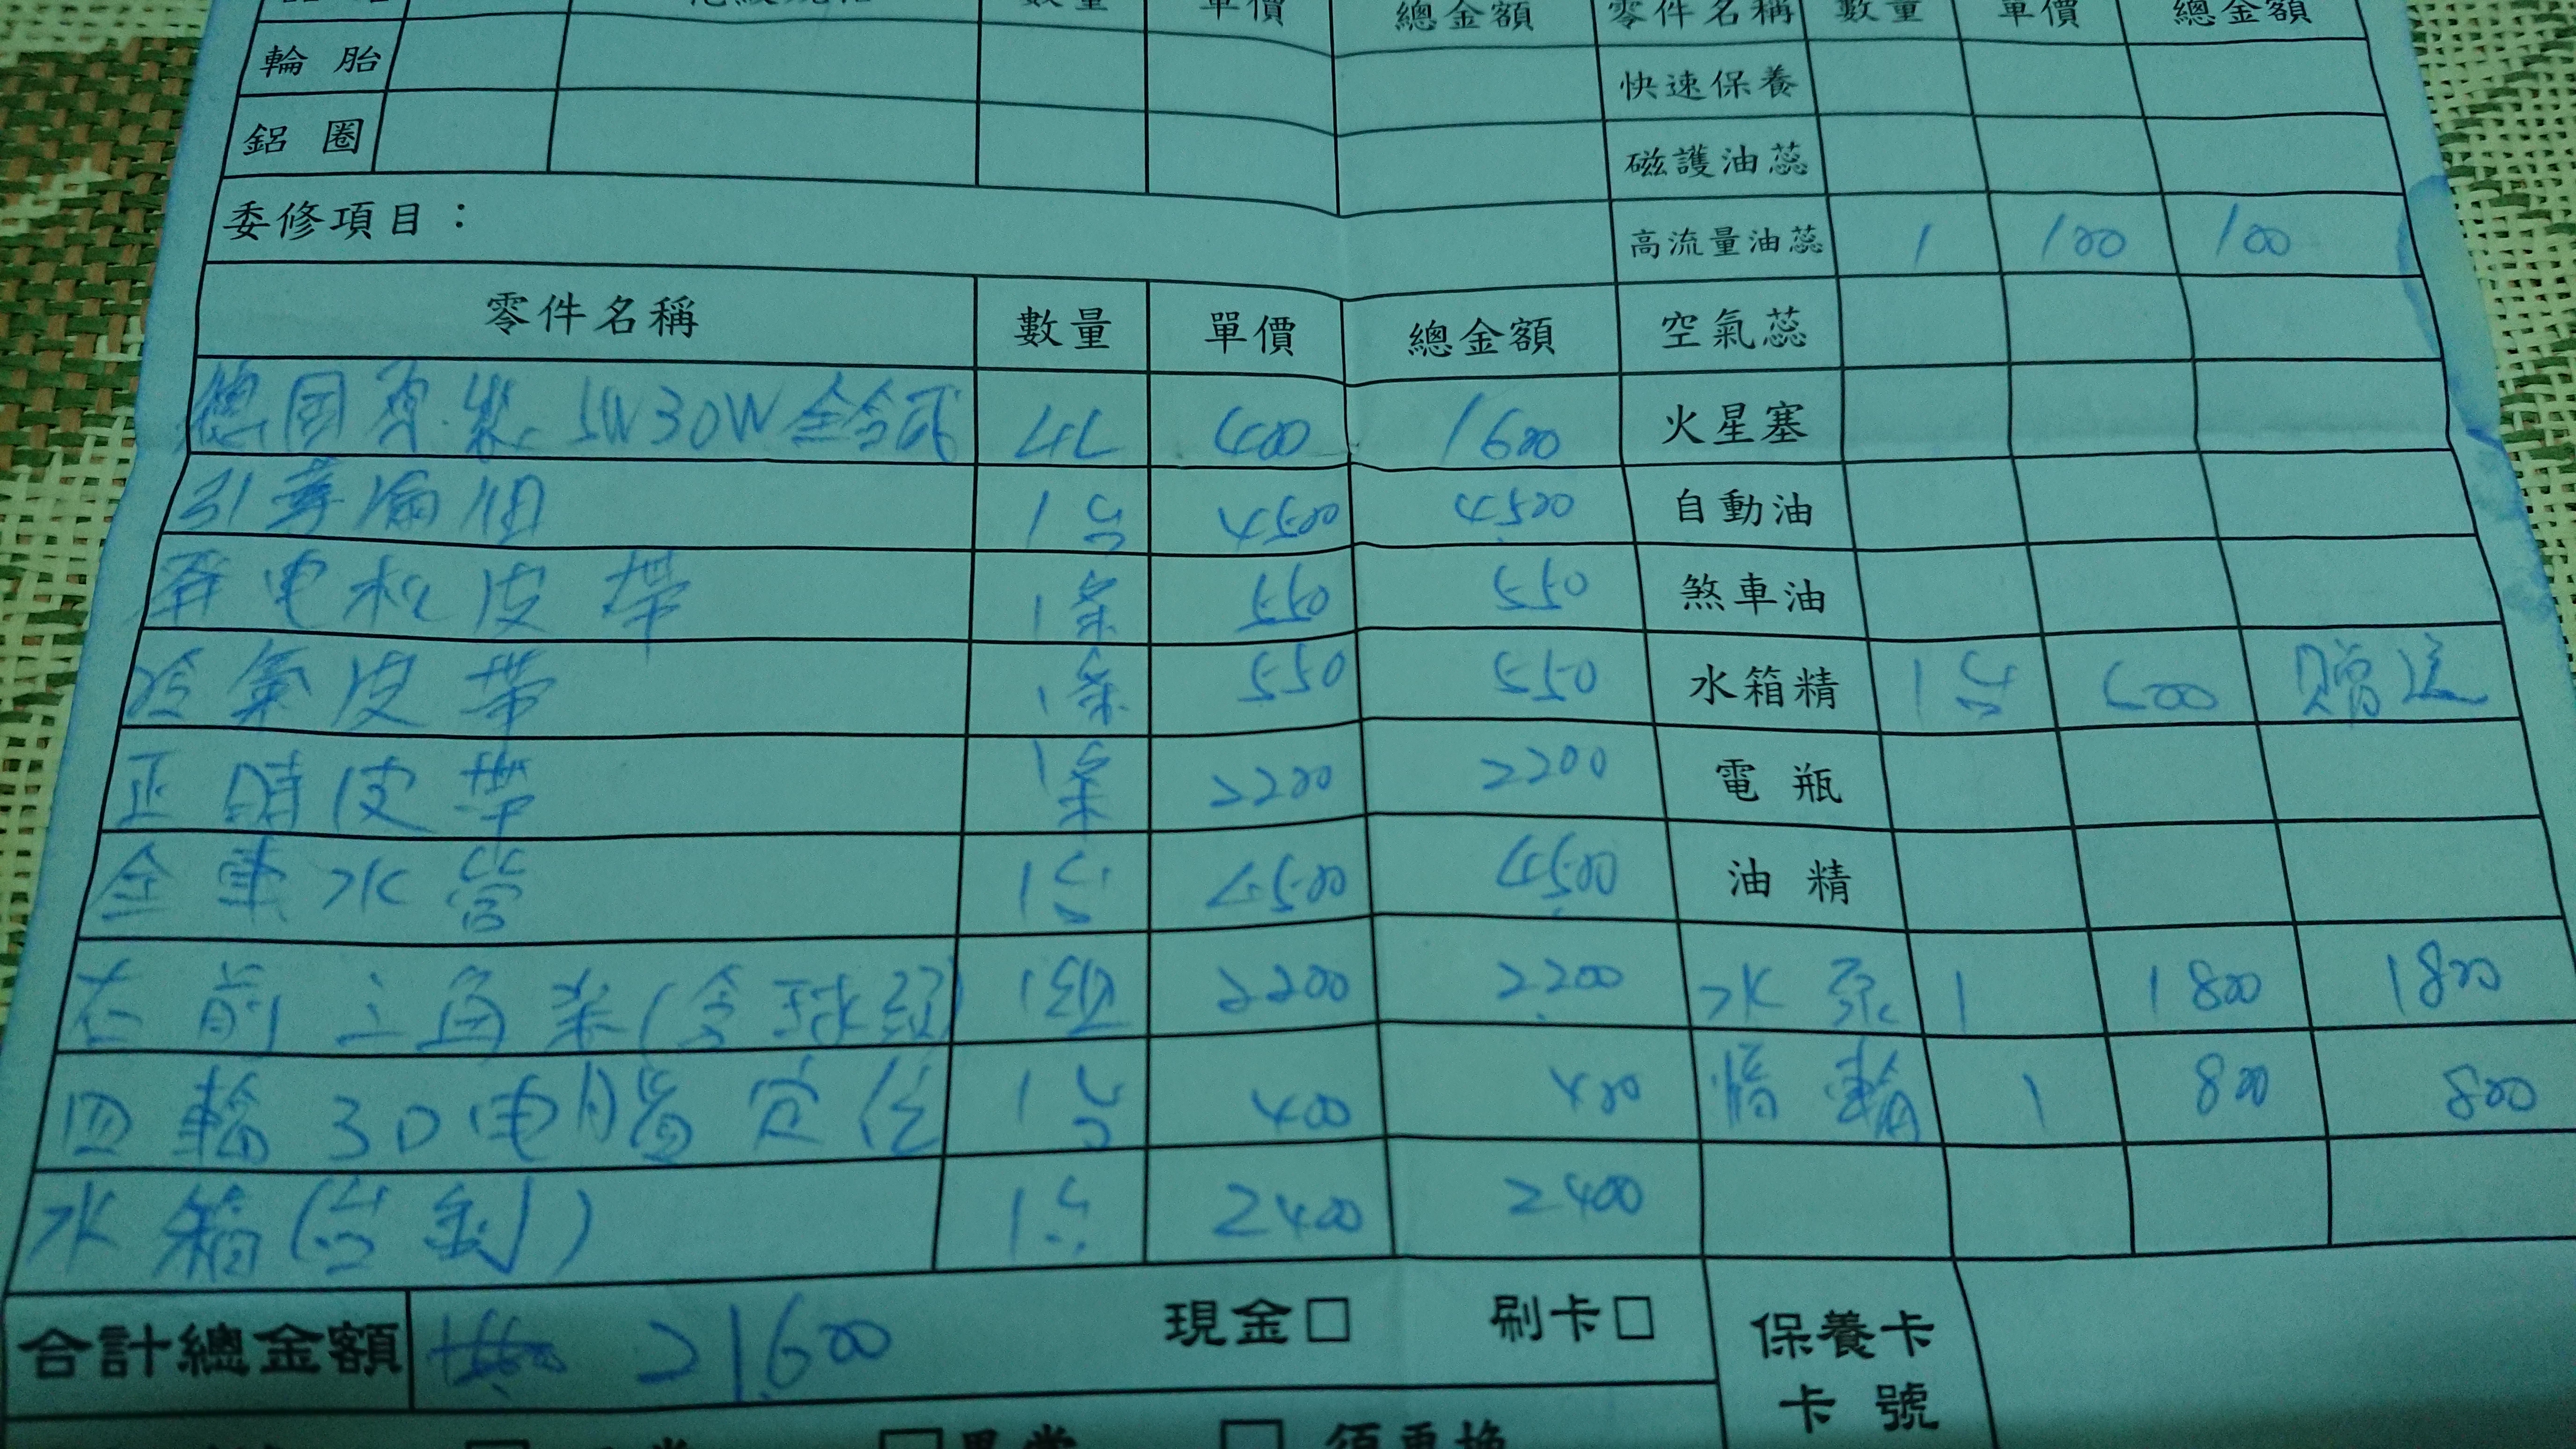 數量 單價 總金額 零件名稱 數量 單價 總金額
輪胎 快速保養
鋁圈 磁護油蕊
委修項目： 高流量油蕊 1 100 100
零件名稱 數量 單價 總金額 空氣蕊
德國原裝 5W30W 全合成 4L 400 1600 火星塞
引擎 1台 4500 4500 自動油
發電機皮帶 1條 550 550 煞車油
冷氣皮帶 1條 550 550 水箱精 1台 600 贈送
正時皮帶 1條 2200 2200 電瓶
全車水管 1台 4500 4500 油精
左前三角架(含球頭) 1組 2200 2200 水泵 1 1800 1800
四輪3D電腦定位 1台 400 400 惰輪 1 800 800
水箱(台製) 1台 2400 2400
合計總金額 21600 現金□ 刷卡□ 保養卡
卡號